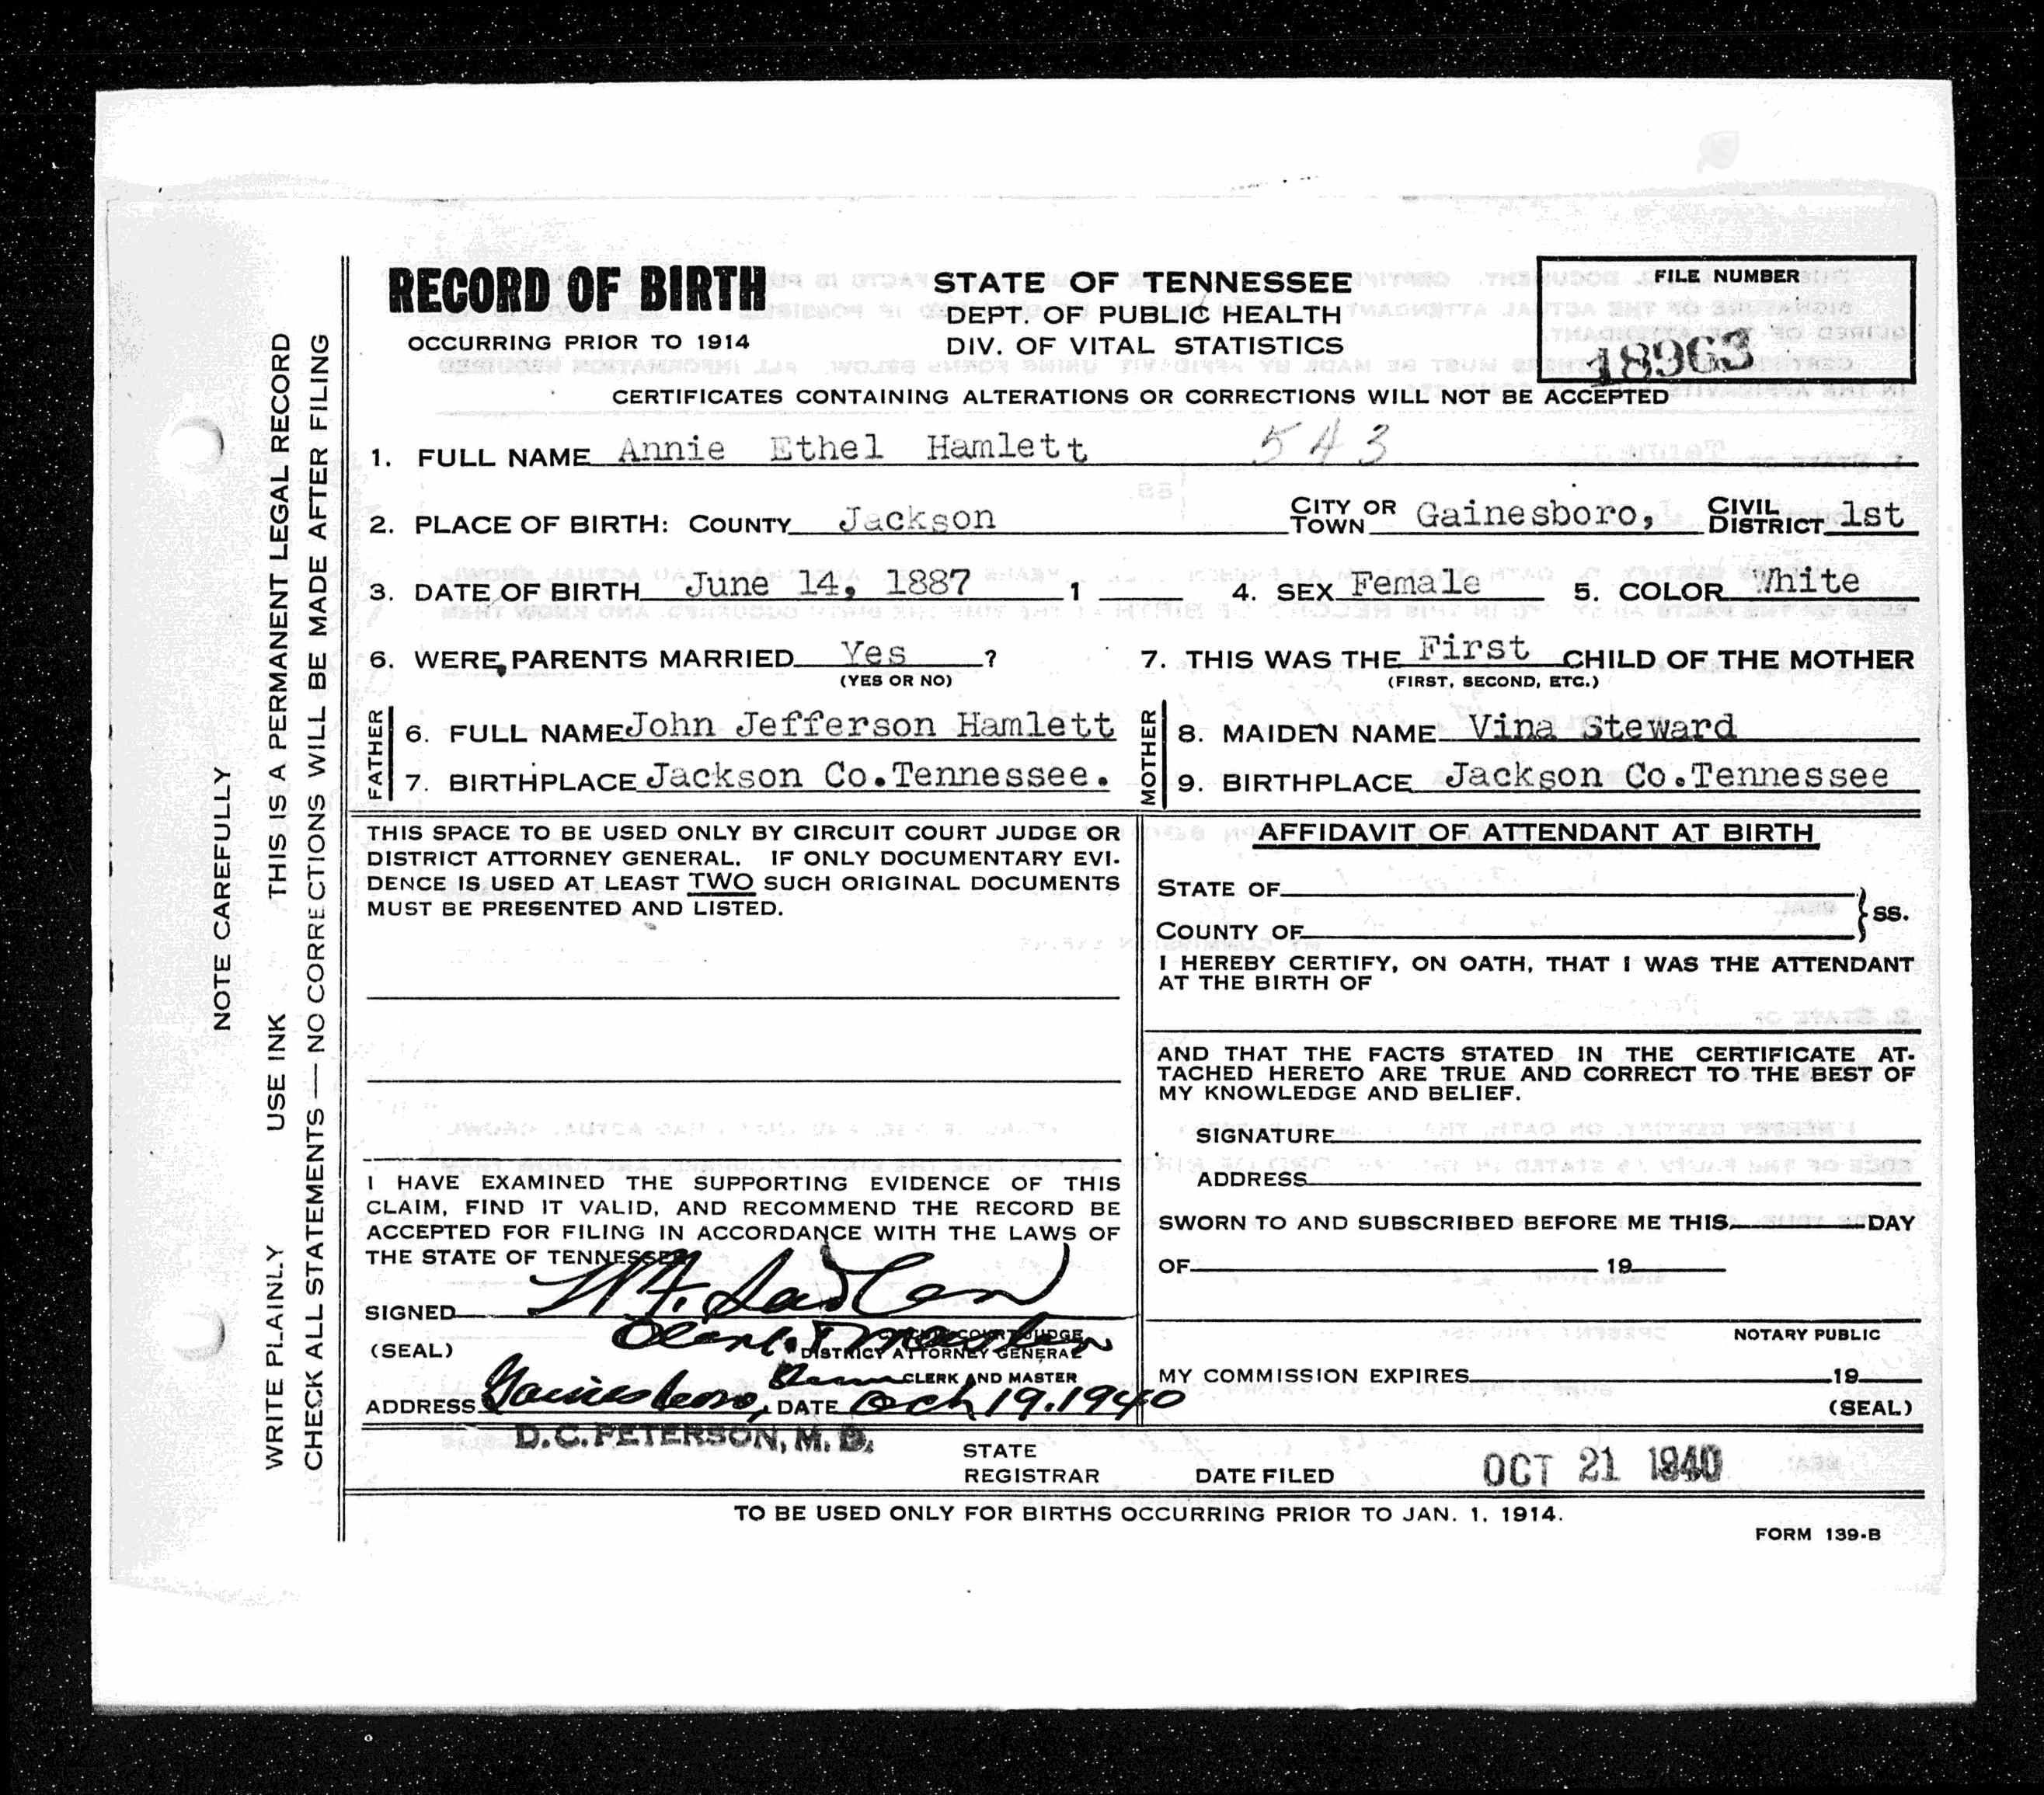 RECORD OF BIRTH
OCCURRING PRIOR TO 1914
STATE OF TENNESSEE
DEPT. OF PUBLIC HEALTH
DIV. OF VITAL STATISTICS
FILE NUMBER
18963
CERTIFICATES CONTAINING ALTERATIONS OR CORRECTIONS WILL NOT BE ACCEPTED
1. FULL NAME Annie Ethel Hamlett 543
2. PLACE OF BIRTH: COUNTY Jackson CITY OR TOWN Gainesboro, CIVIL DISTRICT 1st
3. DATE OF BIRTH June 14, 1887 1 4. SEX Female 5. COLOR White
6. WERE PARENTS MARRIED Yes ? 7. THIS WAS THE First CHILD OF THE MOTHER
(YES OR NO) (FIRST, SECOND, ETC.)
FATHER
6. FULL NAME John Jefferson Hamlett
7. BIRTHPLACE Jackson Co. Tennessee.
MOTHER
8. MAIDEN NAME Vina Steward
9. BIRTHPLACE Jackson Co. Tennessee
THIS SPACE TO BE USED ONLY BY CIRCUIT COURT JUDGE OR
DISTRICT ATTORNEY GENERAL. IF ONLY DOCUMENTARY EVI-
DENCE IS USED AT LEAST TWO SUCH ORIGINAL DOCUMENTS
MUST BE PRESENTED AND LISTED.
I HAVE EXAMINED THE SUPPORTING EVIDENCE OF THIS
CLAIM, FIND IT VALID, AND RECOMMEND THE RECORD BE
ACCEPTED FOR FILING IN ACCORDANCE WITH THE LAWS OF
THE STATE OF TENNESSEE
SIGNED
COURT JUDGE
(SEAL) DISTRICT ATTORNEY GENERAL
CLERK AND MASTER
ADDRESS Gainesboro, DATE Oct 19. 1940
AFFIDAVIT OF ATTENDANT AT BIRTH
STATE OF
COUNTY OF
} SS.
I HEREBY CERTIFY, ON OATH, THAT I WAS THE ATTENDANT
AT THE BIRTH OF
AND THAT THE FACTS STATED IN THE CERTIFICATE AT-
TACHED HERETO ARE TRUE AND CORRECT TO THE BEST OF
MY KNOWLEDGE AND BELIEF.
SIGNATURE
ADDRESS
SWORN TO AND SUBSCRIBED BEFORE ME THIS DAY
OF 19
NOTARY PUBLIC
MY COMMISSION EXPIRES 19
(SEAL)
D. C. PETERSON, M. D. STATE
REGISTRAR DATE FILED OCT 21 1940
TO BE USED ONLY FOR BIRTHS OCCURRING PRIOR TO JAN. 1, 1914.
FORM 139-B
NOTE CAREFULLY
WRITE PLAINLY USE INK THIS IS A PERMANENT LEGAL RECORD
CHECK ALL STATEMENTS — NO CORRECTIONS WILL BE MADE AFTER FILING